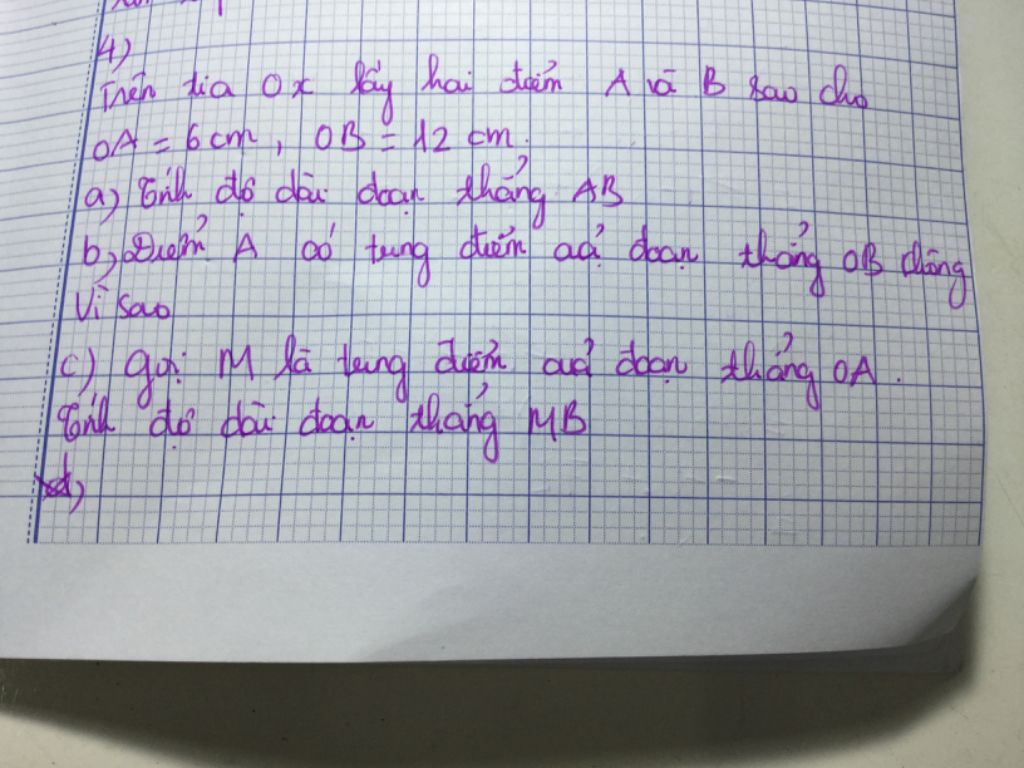 4)
Trên tia Ox lấy hai điểm A và B sao cho
OA = 6 cm, OB = 12 cm.
a) Tính độ dài đoạn thẳng AB
b) Điểm A có trung điểm củả đoạn thẳng OB không
Vì sao
c) gọi M là trung điểm củả đoạn thẳng OA.
Tính độ dài đoạn thẳng MB
d)